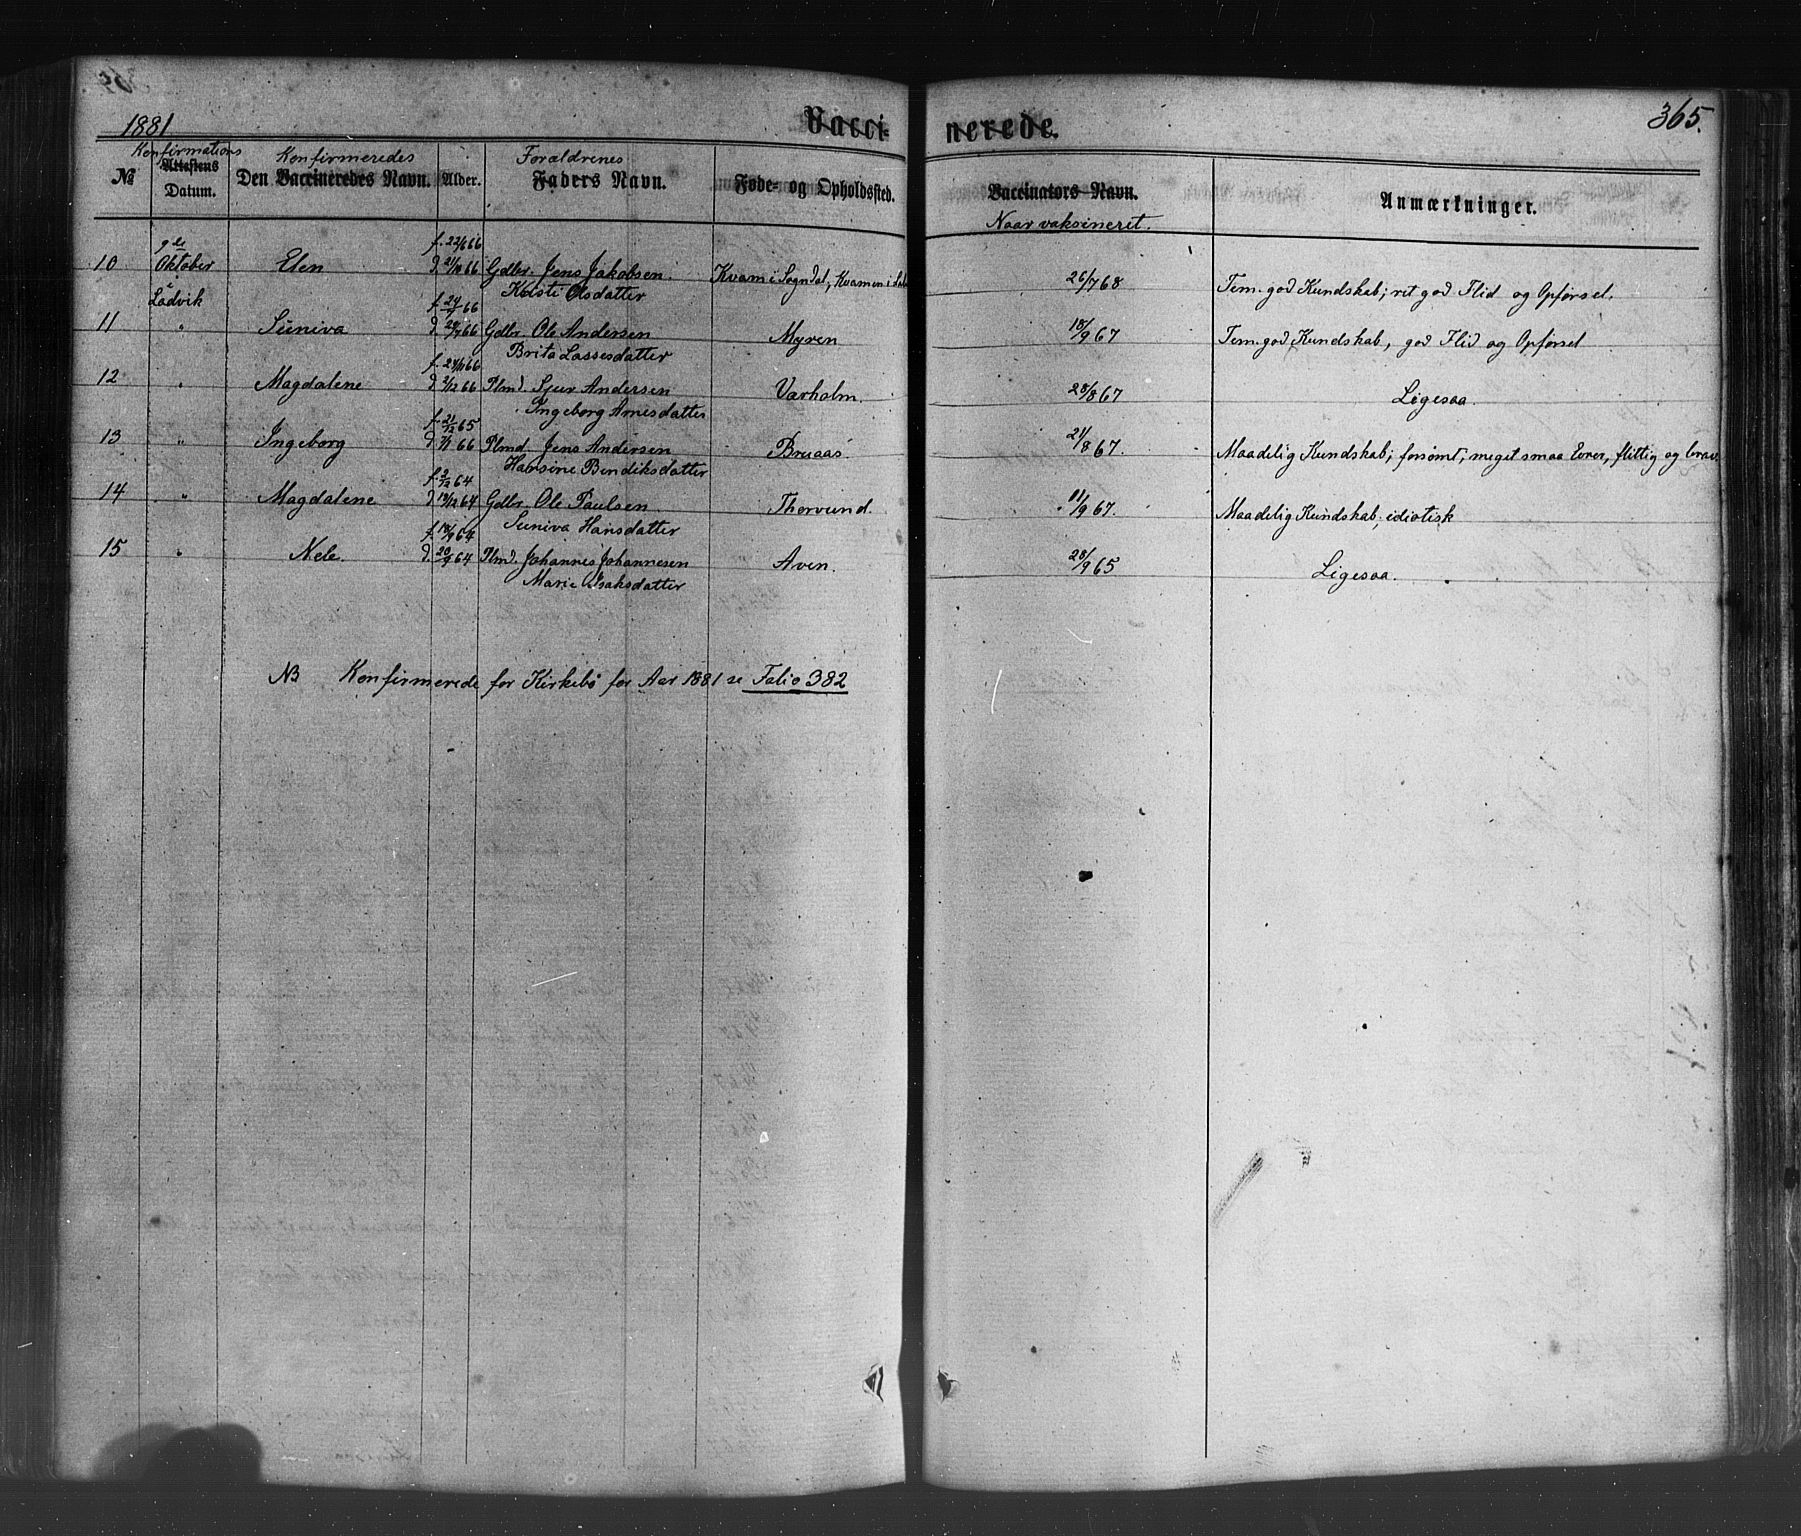 1881 Vacci- nerede. 365.
Konfirmations Konfirmeredes Forældrenes
№ Attestens Datum. Den Vaccineredes Navn. Alder. Faders Navn. Føde- og Opholdssted. Vaccinators Navn. Anmærkninger.
Naar vaksineret.
9de f. 22/6 66
10 Oktober Elen d. 21/10 66 Gdbr. Jens Jakobsen Kvam i Sogndal, Kvamen i 26/7 68 Tem. god Kundskab; ret god Flid og Opførsel.
i Ladvik Kristi Olsdatter
f. 24/7 66
11 " Suniva d. 29/7 66 Gdbr. Ole Andersen Myren 18/9 67 Tem. god Kundskab, god Flid og Opførsel
Brita Lassesdatter
f. 24/11 66
12 " Magdalene d. 2/12 66 Plmd. Sjur Andersen Varholm. 28/8 67 Ligesaa.
Ingeborg Arnesdatter
f. 21/12 65
13 " Ingeborg d. 7/1 66 Plmd. Jens Andersen Bruaas 21/8 67. Maadelig Kundskab; forsømt, meget smaa Evner, flittig og brav
Hansine Bendiksdatter
f. 2/12 64
14 " Magdalene d. 19/12 64 Gdbr. Ole Paulsen Thorvund. 11/9 67. Maadelig Kundskab; idiotisk
Suniva Hansdatter
f. 18/9 64
15 " Nele. d. 20/9 64 Plmd. Johannes Johannesen Aven. 28/9 65 Ligesaa.
Marie Isaksdatter
NB Konfirmerede for Kirkebø for Aar 1881 se Folio 382